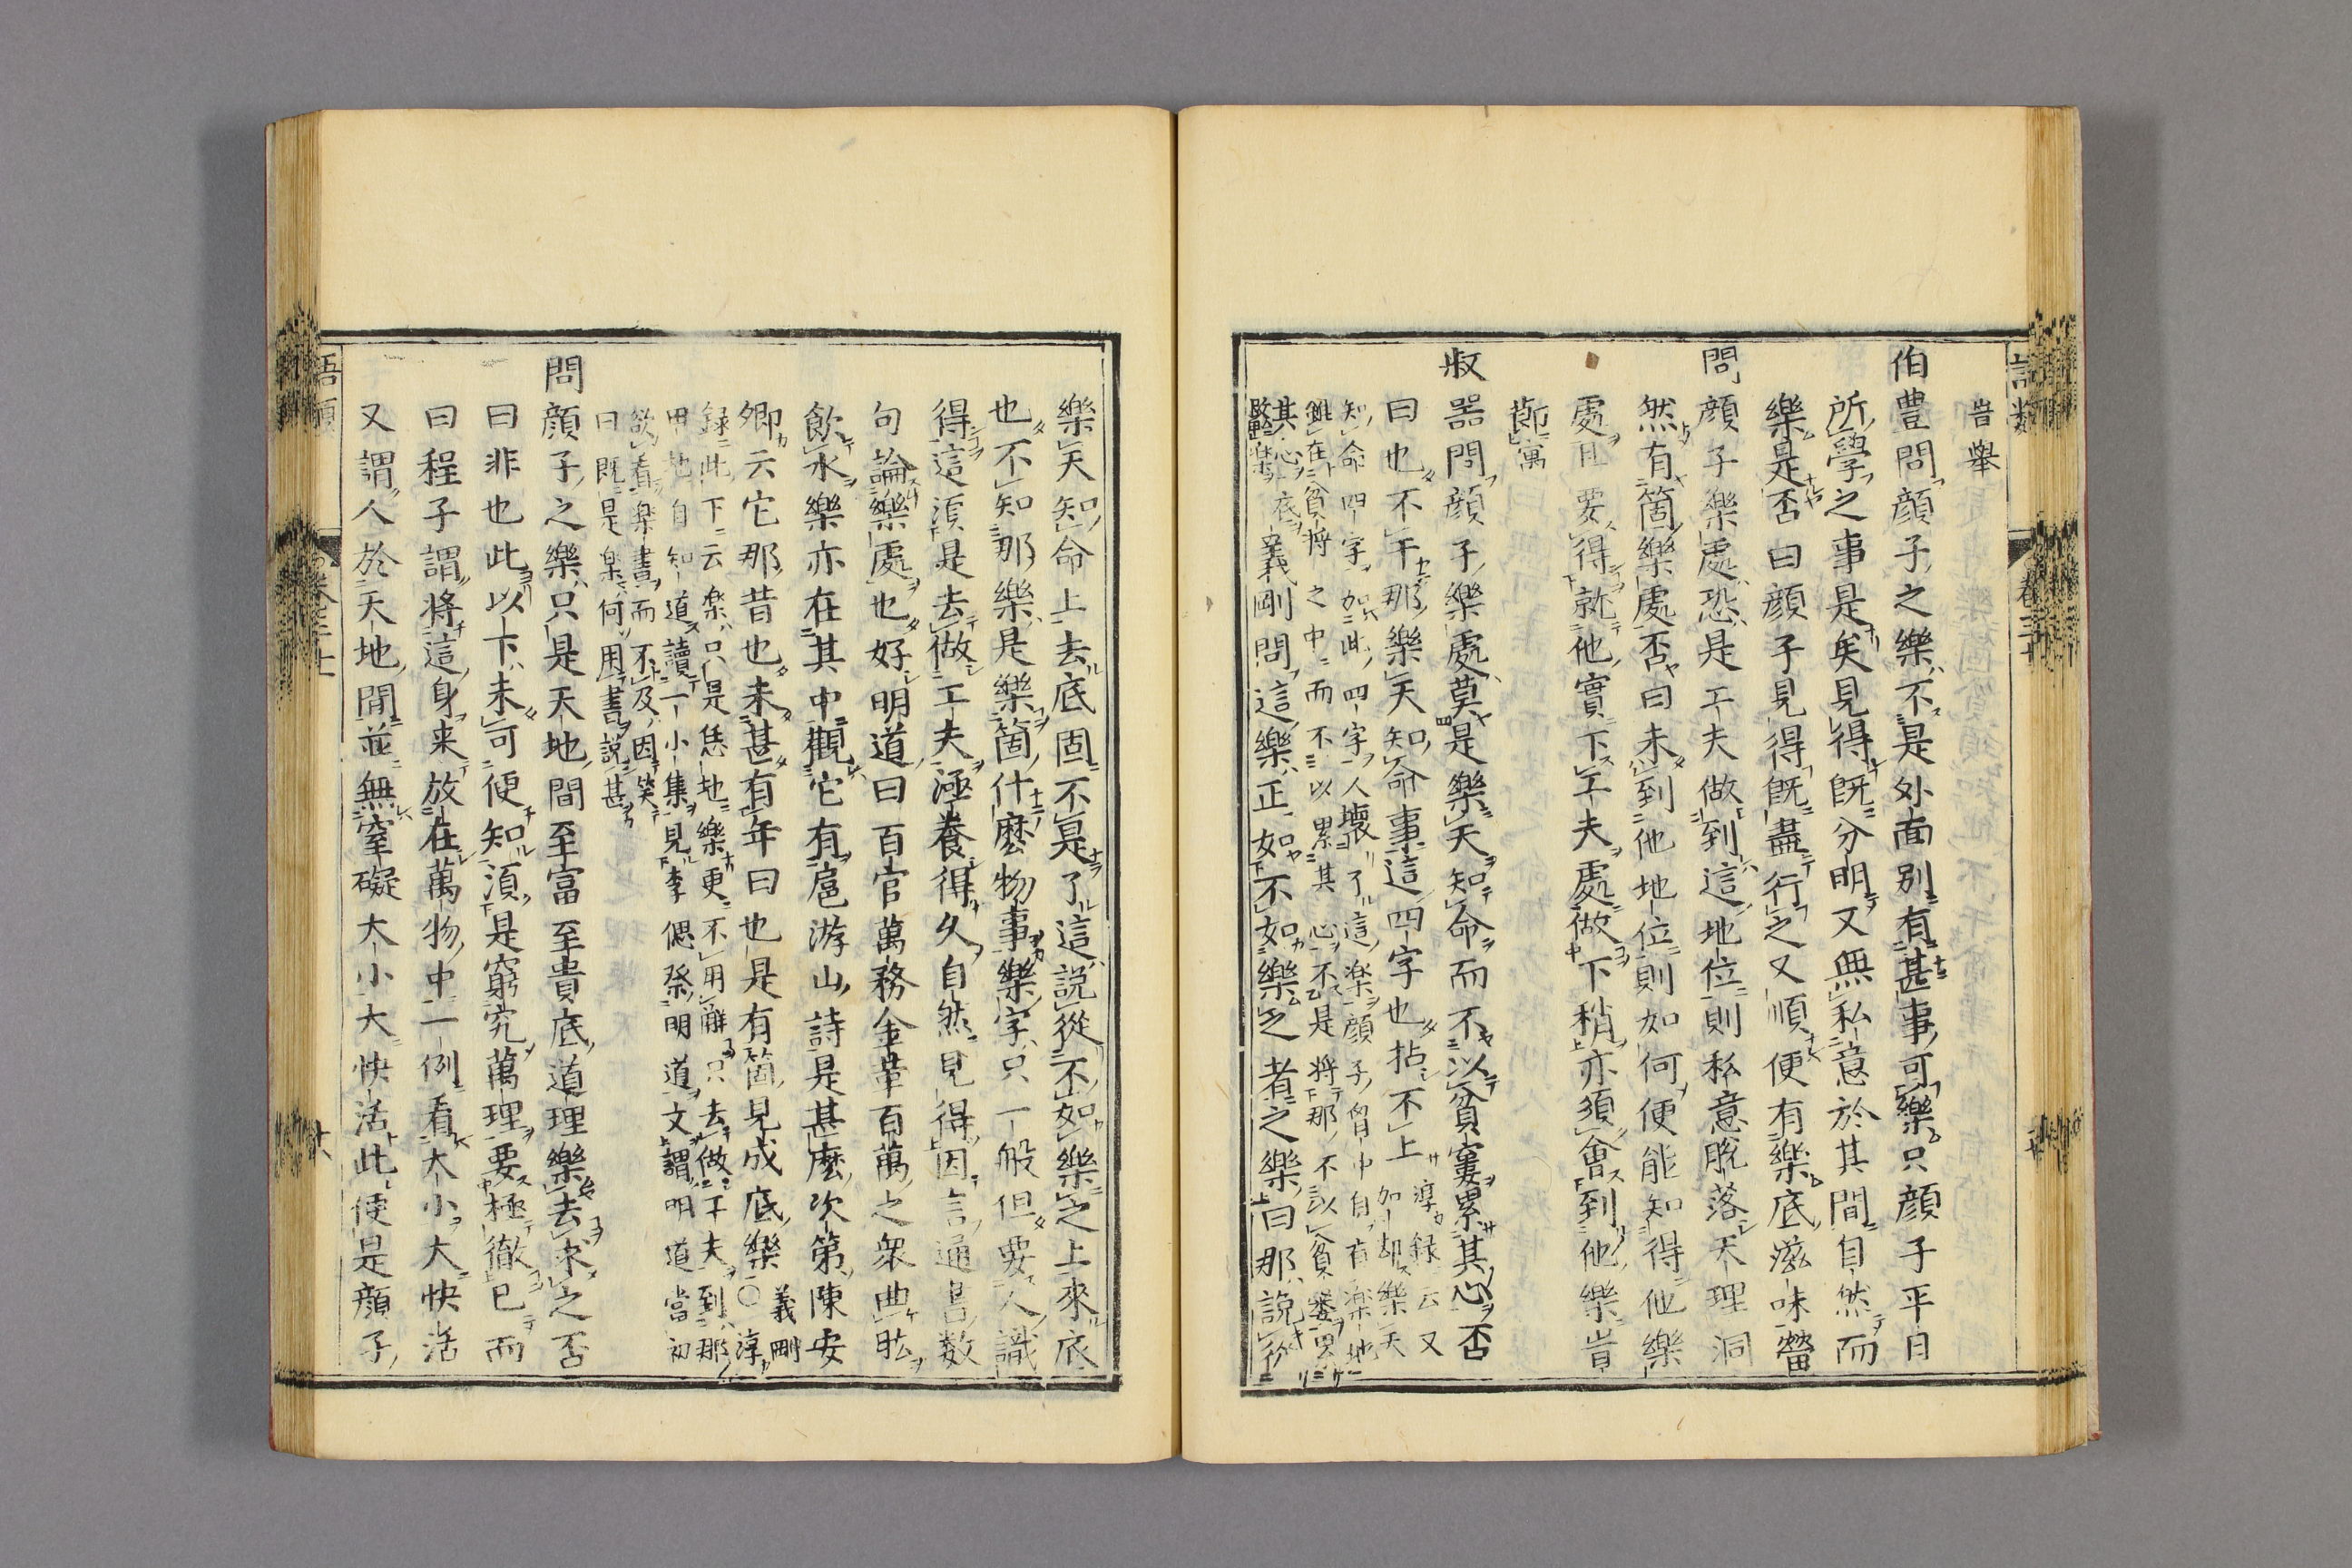 語類
卷三十
時舉
伯豊問顔子之樂不是外面別有甚事可樂只顔子平日
所學之事是矣見得既分明又無私意於其間自然而
樂是否曰顔子見得既盡行之又順便有樂底滋味𤲞
問顔子樂處恐是工夫做到這地位則私意脫落天理洞
然有箇樂處否曰未到他地位則如何便能知得他樂
處且要得就他實下工夫處做下稍亦須會到他樂旹
節寓
叔噐問顔子樂處莫是樂天知命而不以貧窶累其心否
曰也不干那樂天知命事這四字也拈不上淳録云又加却樂天
知命四字加此四字又壞了這楽顔子胷中自有楽地
雖在貧窶之中而不以累其心不是將那不以貧窶累
其心底做樂義剛問這樂正如不如樂之者之樂曰那說從
樂天知命上去底固不是了這說從不如樂之上來底
也不知那樂是樂箇什麼物事樂字只一般但要人識
得這湏是去做工夫涵養得久自然見得因言通書數
句論樂處也好明道曰百官萬務金革百萬之衆曲肱
飲水樂亦在其中觀它有扈游山詩是甚麼次第陳安
卿云它那旹也未甚有年曰也是有箇見成底樂義剛○淳
録此下云楽只是恁地樂更不用解只去做工夫到那
田地自知道讀一小集見李偲祭明道文謂明道當初
欲著樂書而不及因笑
曰既是楽何用書說甚
問顔子之樂只是天地間至富至貴底道理樂去求之否
曰非也此以下未可便知湏是窮究萬理要極徹已而
曰程子謂將這身来放在萬物中一例看大小大快活
又謂人於天地間並無窒礙大小大快活此便是顔子
語類
卷三十
十八